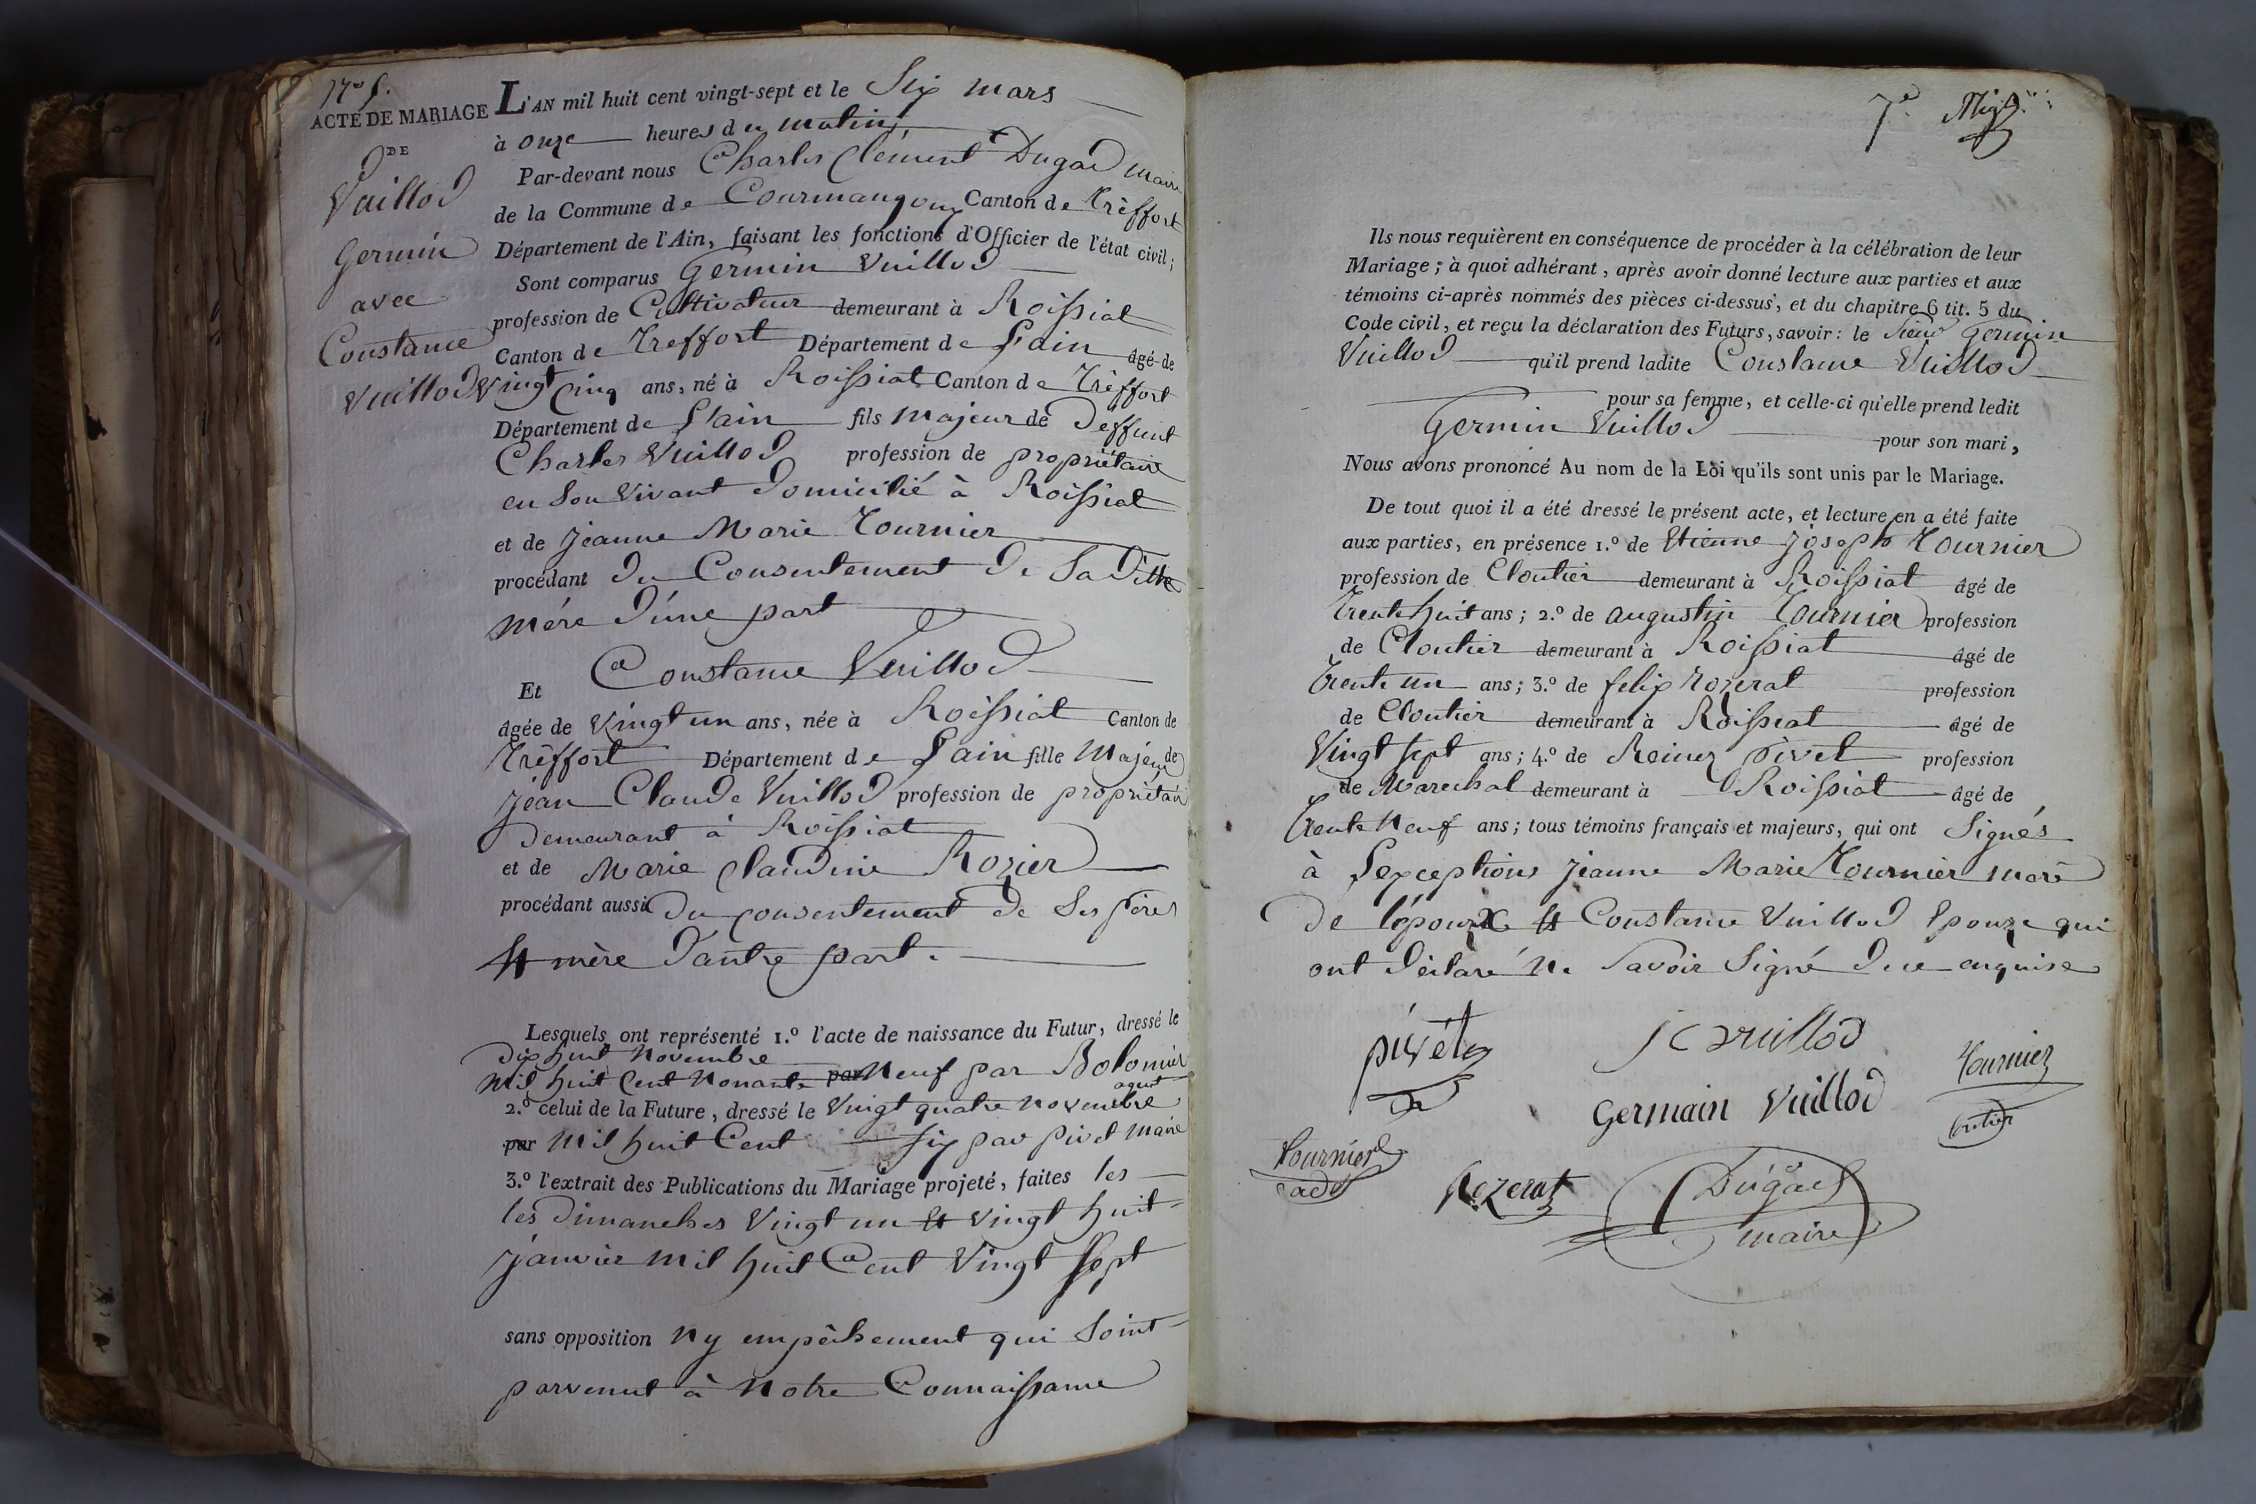 ACTE DE MARIAGE
DE
Vuillod
Germin
avec
Constance
Vuillod
L'AN mil huit cent vingt-sept et le Six mars
à onze heures du matin,
Par-devant nous Charles Clément Dugad maire
de la Commune de Courmangoux Canton de Trèffort
Département de l'Ain, faisant les fonctions d'Officier de l'état civil;
Sont comparus Germin Vuillod
profession de Cultivateur demeurant à Roissiat
Canton de Treffort Département de Lain âgé de
vingt cinq ans, né à Roissiat Canton de Trèffort
Département de Lain fils majeur de deffunt
Charles Vuillod profession de propriétaire
en son vivant domicilié à Roissiat
et de jeanne Marie Tournier
procédant du Consentement de Saditte
mére d'úne part
Et Constance Vuillod
âgée de vingt un ans, née à Roissiat Canton de
Trèffort Département de Lain fille Majeure de
jean Claude Vuillod profession de propriétaire
demeurant à Roissiat
et de Marie Claudine Rozier
procédant aussi du consentement de Ses péres
et mère d'autre part.
Lesquels ont représenté 1.º l'acte de naissance du Futur, dressé le
dix huit Novembre
mil huit Cent Nonante par Neuf par Bolomier
agent
2.º celui de la Future, dressé le vingt quatre novembre
par mil huit Cent Six par pivet maire
3.º l'extrait des Publications du Mariage projeté, faites les
les dimanches vingt un et vingt huit
janvier mil huit Cent vingt Sept
sans opposition ny empêchement qui Soint
parvenut à Notre Connaissance
7.e
Ils nous requièrent en conséquence de procéder à la célébration de leur
Mariage; à quoi adhérant, après avoir donné lecture aux parties et aux
témoins ci-après nommés des pièces ci-dessus, et du chapitre 6 tit. 5 du
Code civil, et reçu la déclaration des Futurs, savoir: le Sieur Germin
Vuillod qu'il prend ladite Constance Vuillod
pour sa femme, et celle-ci qu'elle prend ledit
Germin Vuillod pour son mari,
Nous avons prononcé Au nom de la Loi qu'ils sont unis par le Mariage.
De tout quoi il a été dressé le présent acte, et lecture en a été faite
aux parties, en présence 1.º de Etienne joseph Tournier
profession de Cloutier demeurant à Roissiat âgé de
Trente huit ans; 2.º de augustin Tournier profession
de Cloutier demeurant à Roissiat âgé de
Trente un ans; 3.º de felix rozerat profession
de Cloutier demeurant à Roissiat âgé de
Vingt Sept ans; 4.º de Reimer pivet profession
de Marechal demeurant à Roissiat âgé de
Trente Neuf ans; tous témoins français et majeurs, qui ont Signés
à Lexception jeanne Marie Tournier mere
de lépoux et Constance Vuillod Epouze qui
ont déclaré Ne Savoir Signé de ce enquise
pivet
JC vuillod
Tournier
Germain Vuillod
Tournier
cadet
Rozerat
Dugad
maire